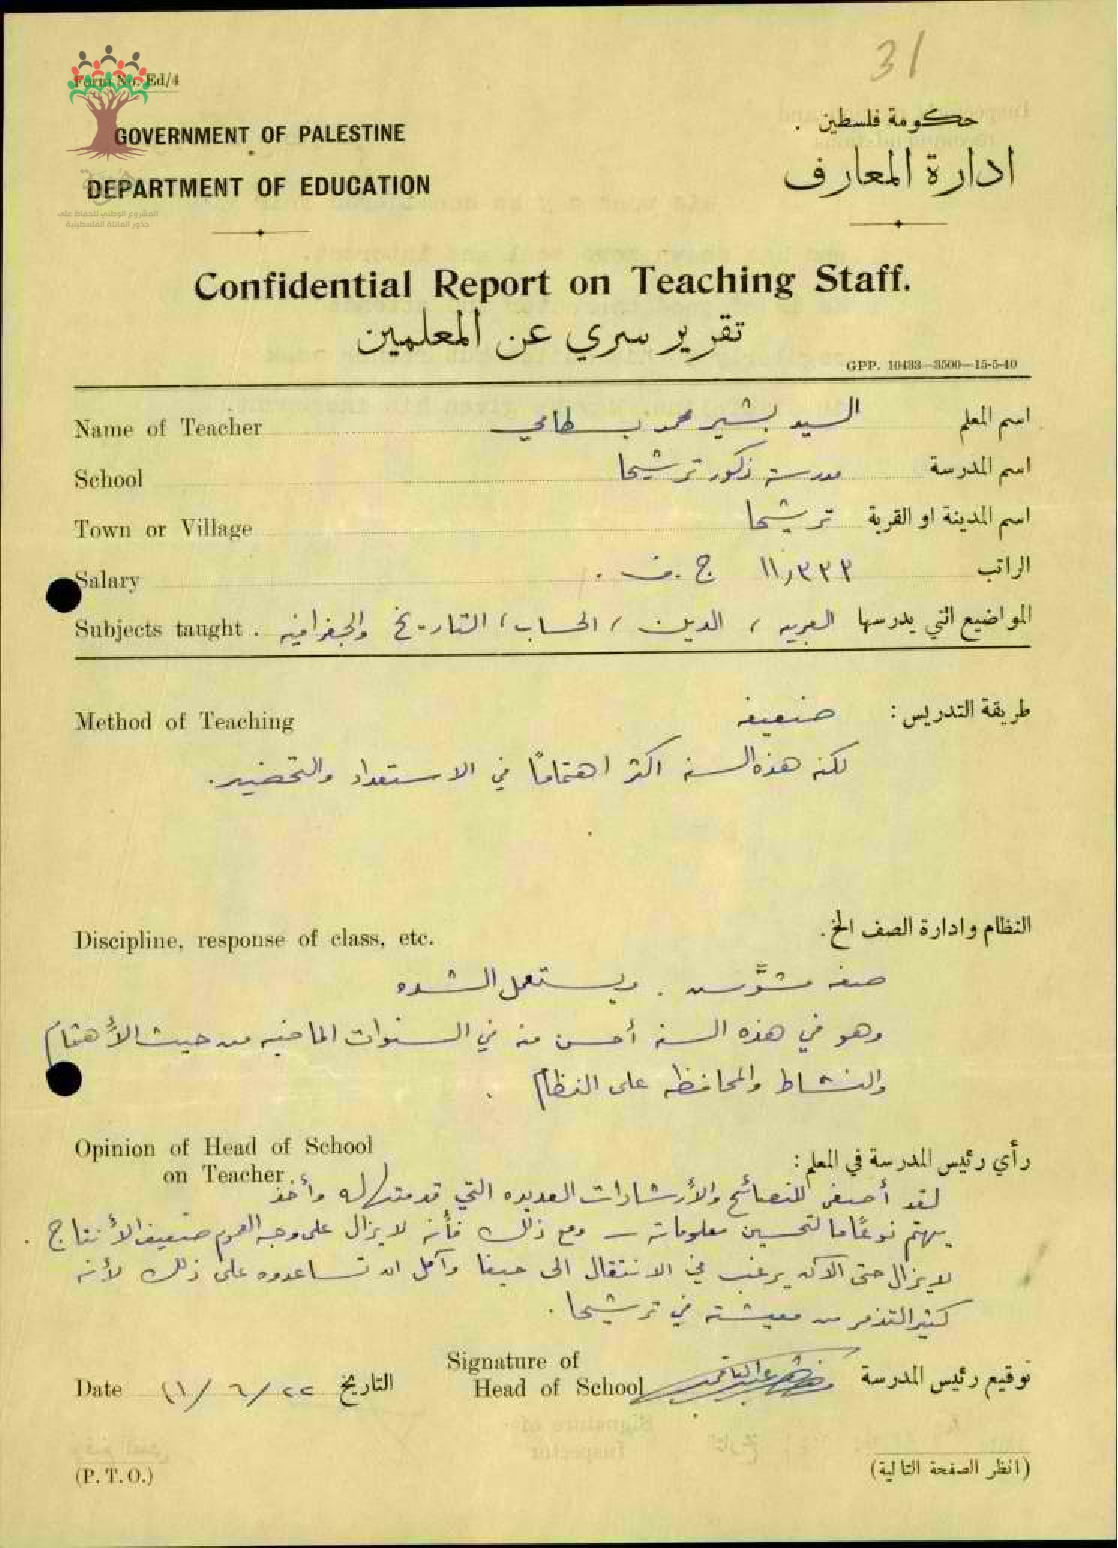 31
Form No. Ed/4
GOVERNMENT OF PALESTINE
حكومة فلسطين
DEPARTMENT OF EDUCATION
ادارة المعارف
المشروع الوطني للحفاظ على
جذور العائلة الفلسطينية
Confidential Report on Teaching Staff.
تقرير سري عن المعلمين
GPP. 10433—3500—15-5-40
Name of Teacher السيد بشير محمد بسطامي اسم المعلم
School مدرسة ذكور ترشيحا اسم المدرسة
Town or Village ترشيحا اسم المدينة او القرية
Salary ١١٫٣٣٣ ج.ف. الراتب
Subjects taught . المواضيع التي يدرسها العربيه ، الدين ، الحساب ، التاريخ والجغرافيه
Method of Teaching ضعيفه طريقة التدريس :
لكنه هذه السنه اكثر اهتمامًا في الاستعداد والتحضير.
Discipline, response of class, etc. النظام وادارة الصف الخ.
صفه مشوَّش . ويستعمل الشده
وهو في هذه السنه أحسن منه في السنوات الماضيه من حيث الأهتمام
والنشاط والمحافظه على النظام .
Opinion of Head of School
on Teacher. رأي رئيس المدرسة في المعلم :
لقد أصغى للنصائح والأرشادات العديده التي قدمتها له وأخذ
يهتم نوعًا ما لتحسين معلوماته — ومع ذلك فأنه لا يزال على وجه العموم ضعيف الأنتاج .
لا يزال حتى الآن يرغب في الانتقال الى حيفا وآمل ان تساعدوه على ذلك لأنه
كثير التذمر من معيشته في ترشيحا .
Signature of
Head of School توقيع رئيس المدرسة
Date ٢٢/٦/٤١ التاريخ
(P. T. O.) (انظر الصفحة التالية)